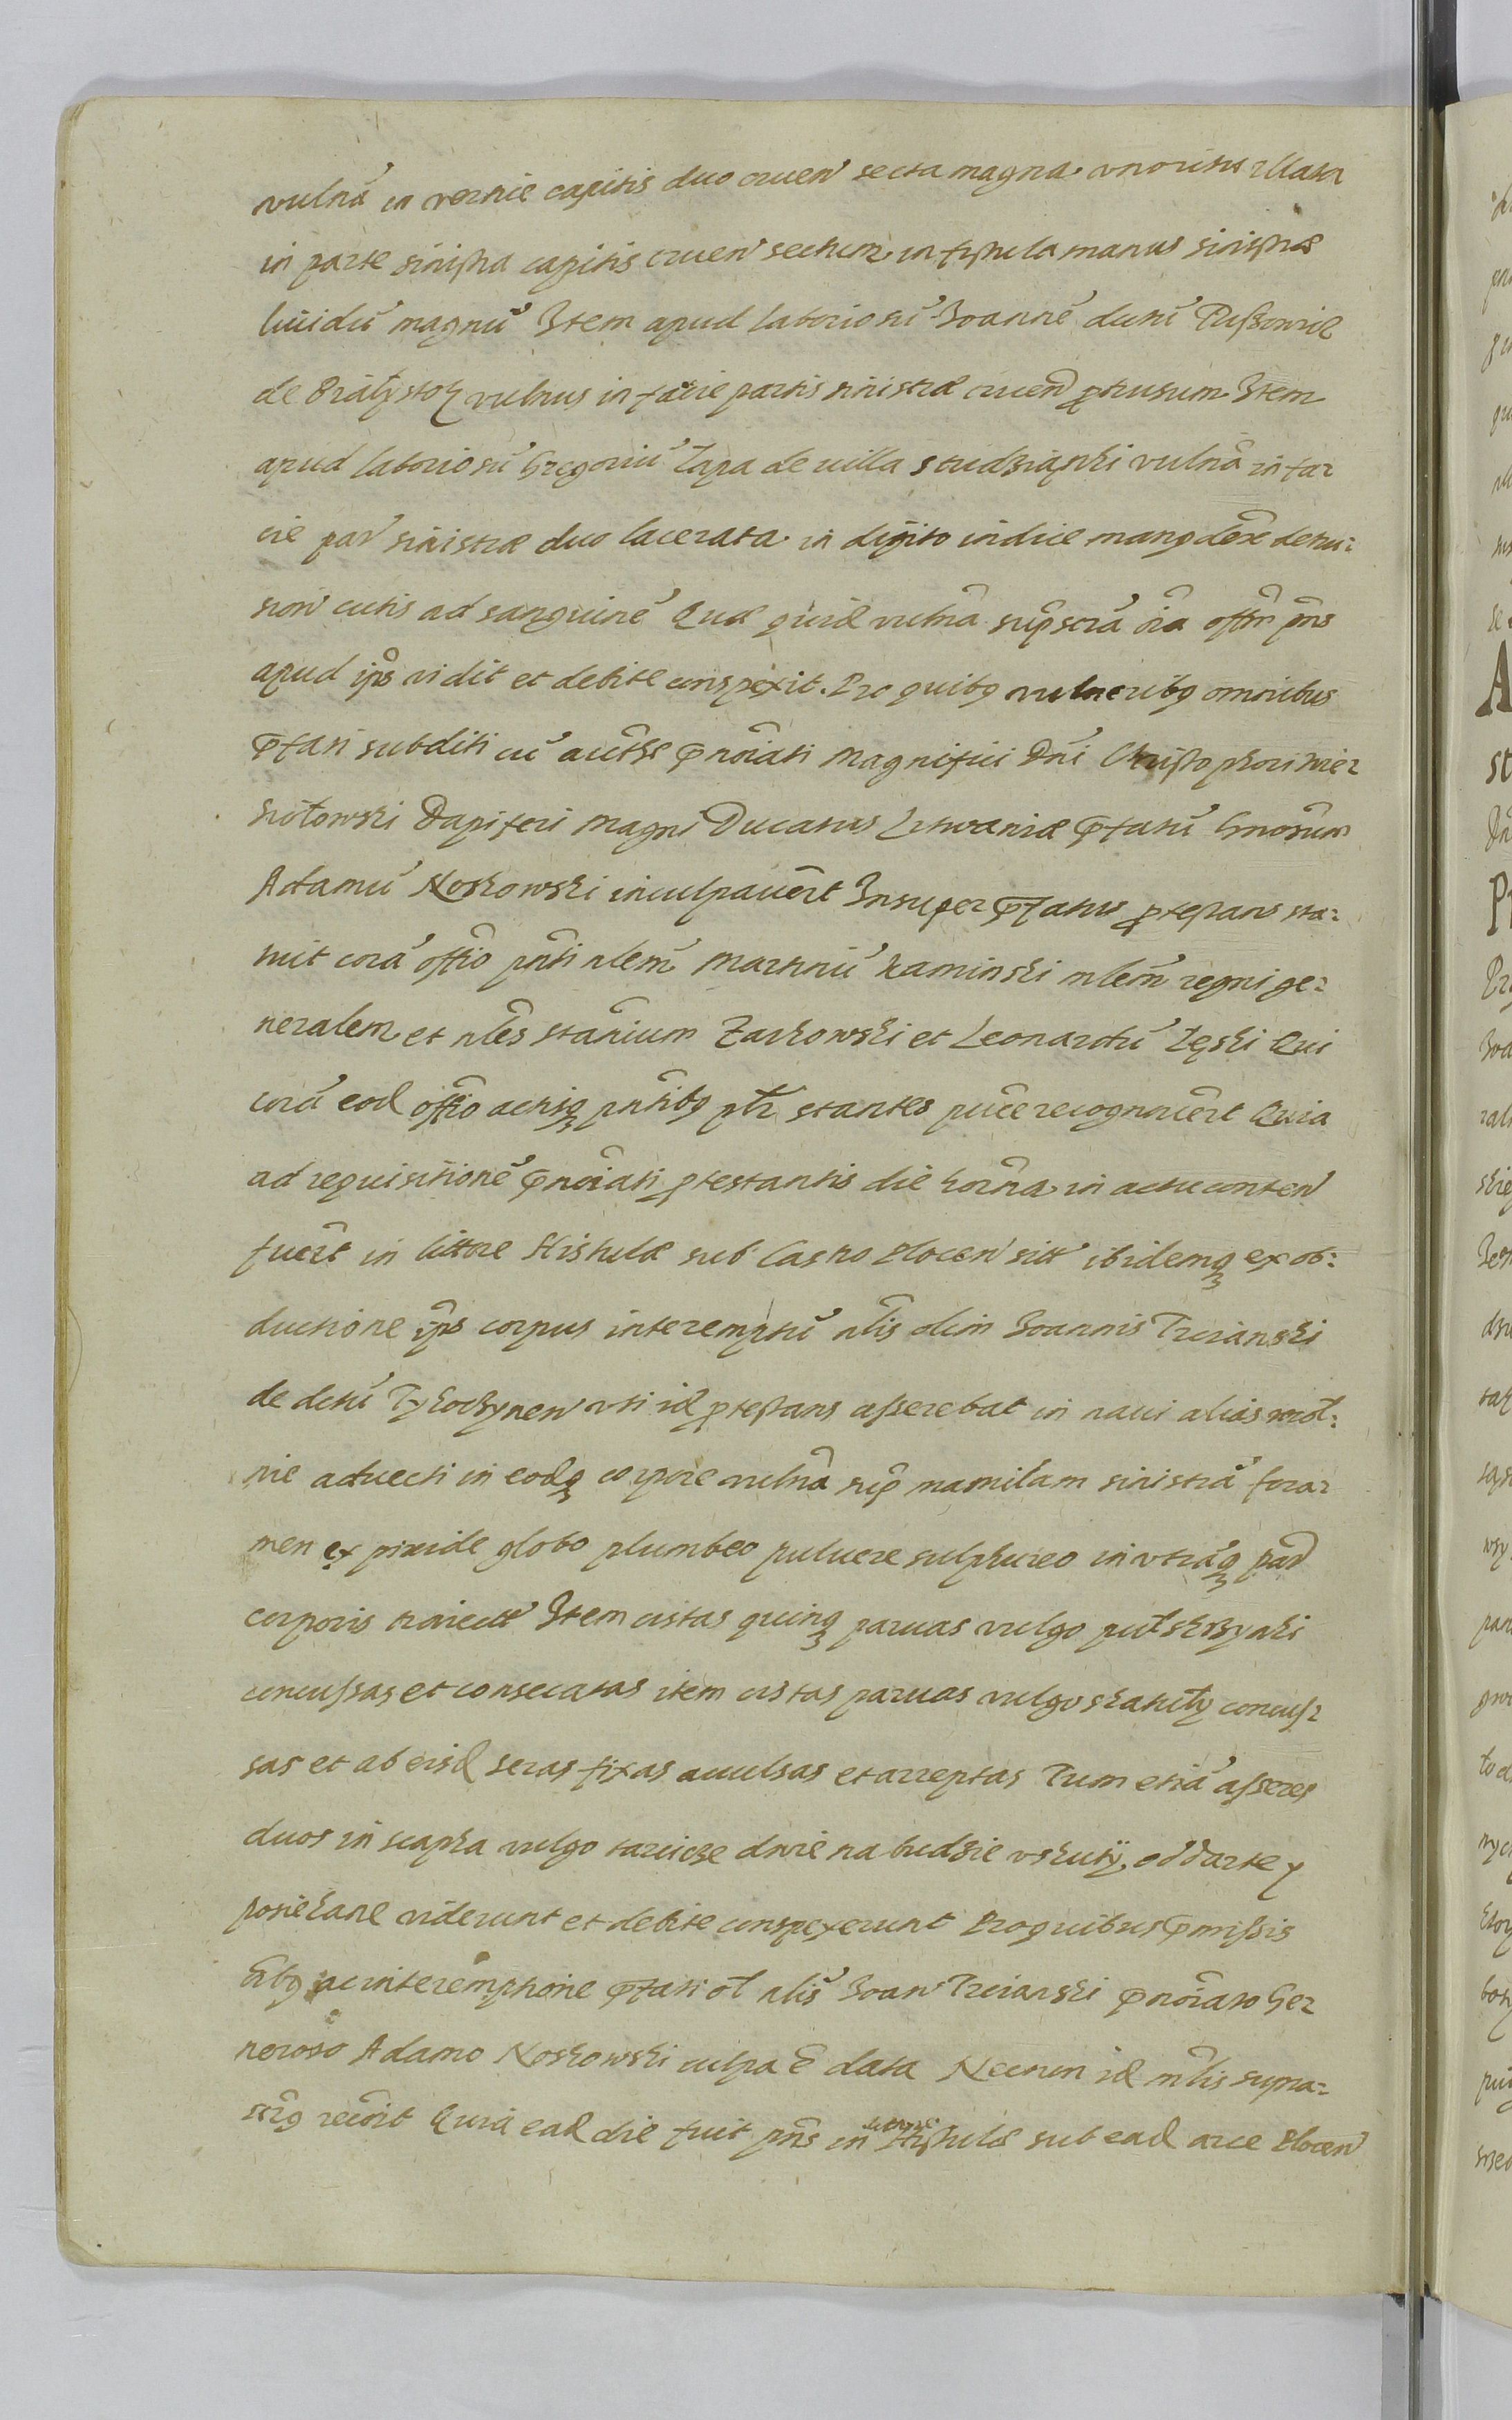 vulnā in vertice capitis duo cruen̄ secta magna unoictus illata
in parte sinistra capitis cruen̄ sectum in fistula manus sinistræ
liuidū magnū Item apud laboriosū Joannē dictū
de Białystok vulnus in facie partis sinistræ cruen̄ ꝑtusum Item
apud laboriosū Gregoriū Łapa de uilla Studzianki vulnā in fa-
cie par̄ sinistræ duo lacerata in digito indice manꝰ dex̄ detru-
sion̄ cutis ad sanguinē Quæ quid vulnā supscrā oīa offm̄ pn̄s
apud ip̄s vidit et debite conspexit. Pro quibꝰ vulneribꝰ omnibus
p̄fati subditi cū aucthe p̄noīati Magnifici Dn̄i Christophori Wie-
siołowski Dapiferi Magni Ducatus Litwaniæ p̄fatū Gn̄osum
Adamū Noskowski inculpauer̄t Insuper p̄fatus ꝓtestans sta-
tuit corā offio pn̄ti nlem̄ Martinū Kaminski mlem̄ regni ge-
neralem et nl̄es Stan̄ium Zarkowski et Leonardū Łęski Qui
corā eod offio actisq̨ pn̄tibꝰ pl̄r stantes pu͞ce recognouer̄t Quia
ad requisitionē p̄noīati ꝓtestantis die hoīna in actu conten̄
fuer̄t in littore Histulæ sub Castro Plocen̄ sitt̄ ibidemq̨ ex ob-
ductione ip̄s corpus interemptū nl̄is olim Joannis Trzianski
de dictū Tykoczynen̄ uti id ꝓtestans asserebat in naui alias
aduecti in eodq̨ corpore vulnā sup̄ mamilam sinistrā fora-
men ex pixide globo plumbeo puluere sulphureo in utrāq̨ par̄
corporis traiectt̄ Item cistas quinq̨ paruas vulgo pułskrzynki
concussas et consecatas item cistas paruas vulgo skatuły concus-
sas et ab eisd seras fixas auulsas et arreptas Tum etiā asseres
duos in scapha vulgo tarcicze dwie na budzie u skuty oddarte y
posiekane viderunt et debite conspexerunt Pro quibus p̄missis
ac interemptione p̄fati ol nl̄is Joan̄ Trzianski p̄noīato Ge-
neroso Adamo Noskowski culpa ē data Necnon id ml̄is supra-
scr̄ꝰ recōit Quia ead die fuit pn̄s in littore Histulæ sub ead arce Plocen̄